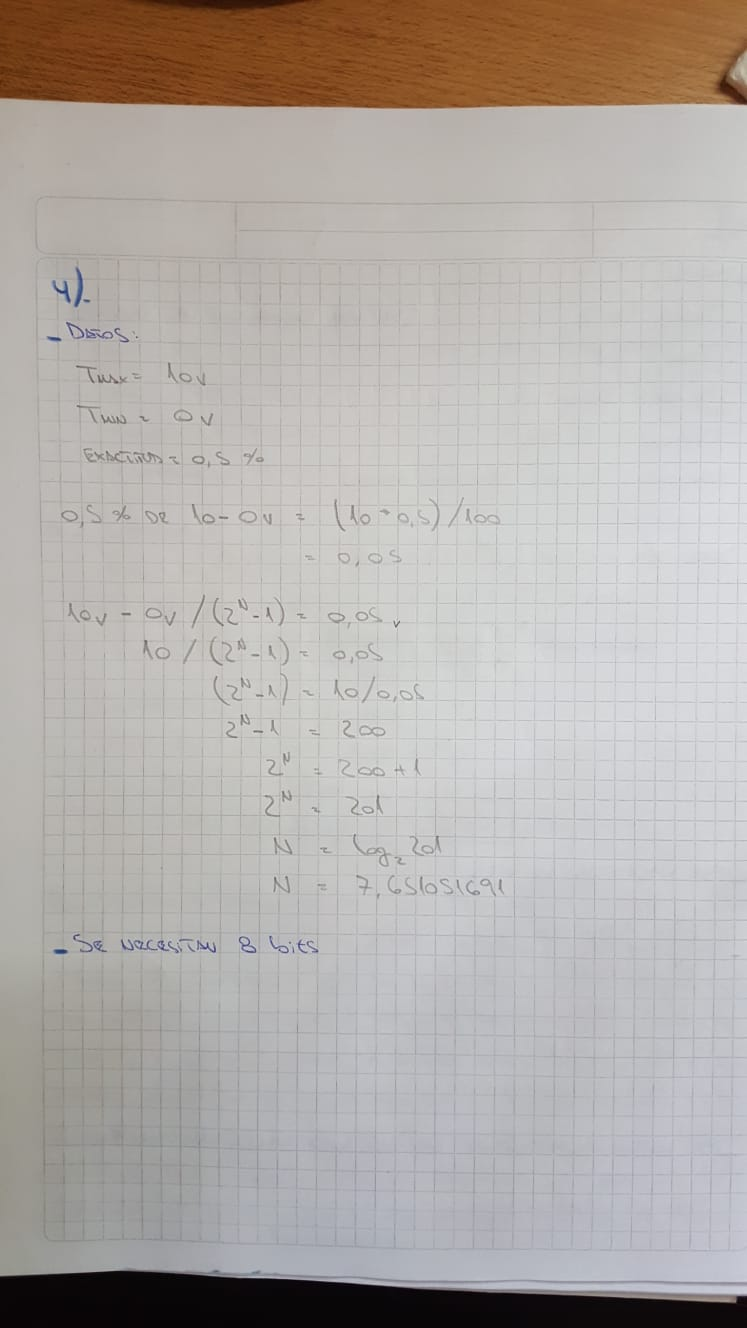 4).
- DATOS:
TMAX = 10V
TMIN = 0V
EXACTITUD = 0,5 %
0,5 % DE 10-0V = (10*0,5)/100
= 0,05
10V - 0V / (2^N-1) = 0,05V
10 / (2^N-1) = 0,05
(2^N-1) = 10/0,05
2^N-1 = 200
2^N = 200+1
2^N = 201
N = log₂ 201
N = 7,651051691
- SE NECESITAN 8 bits